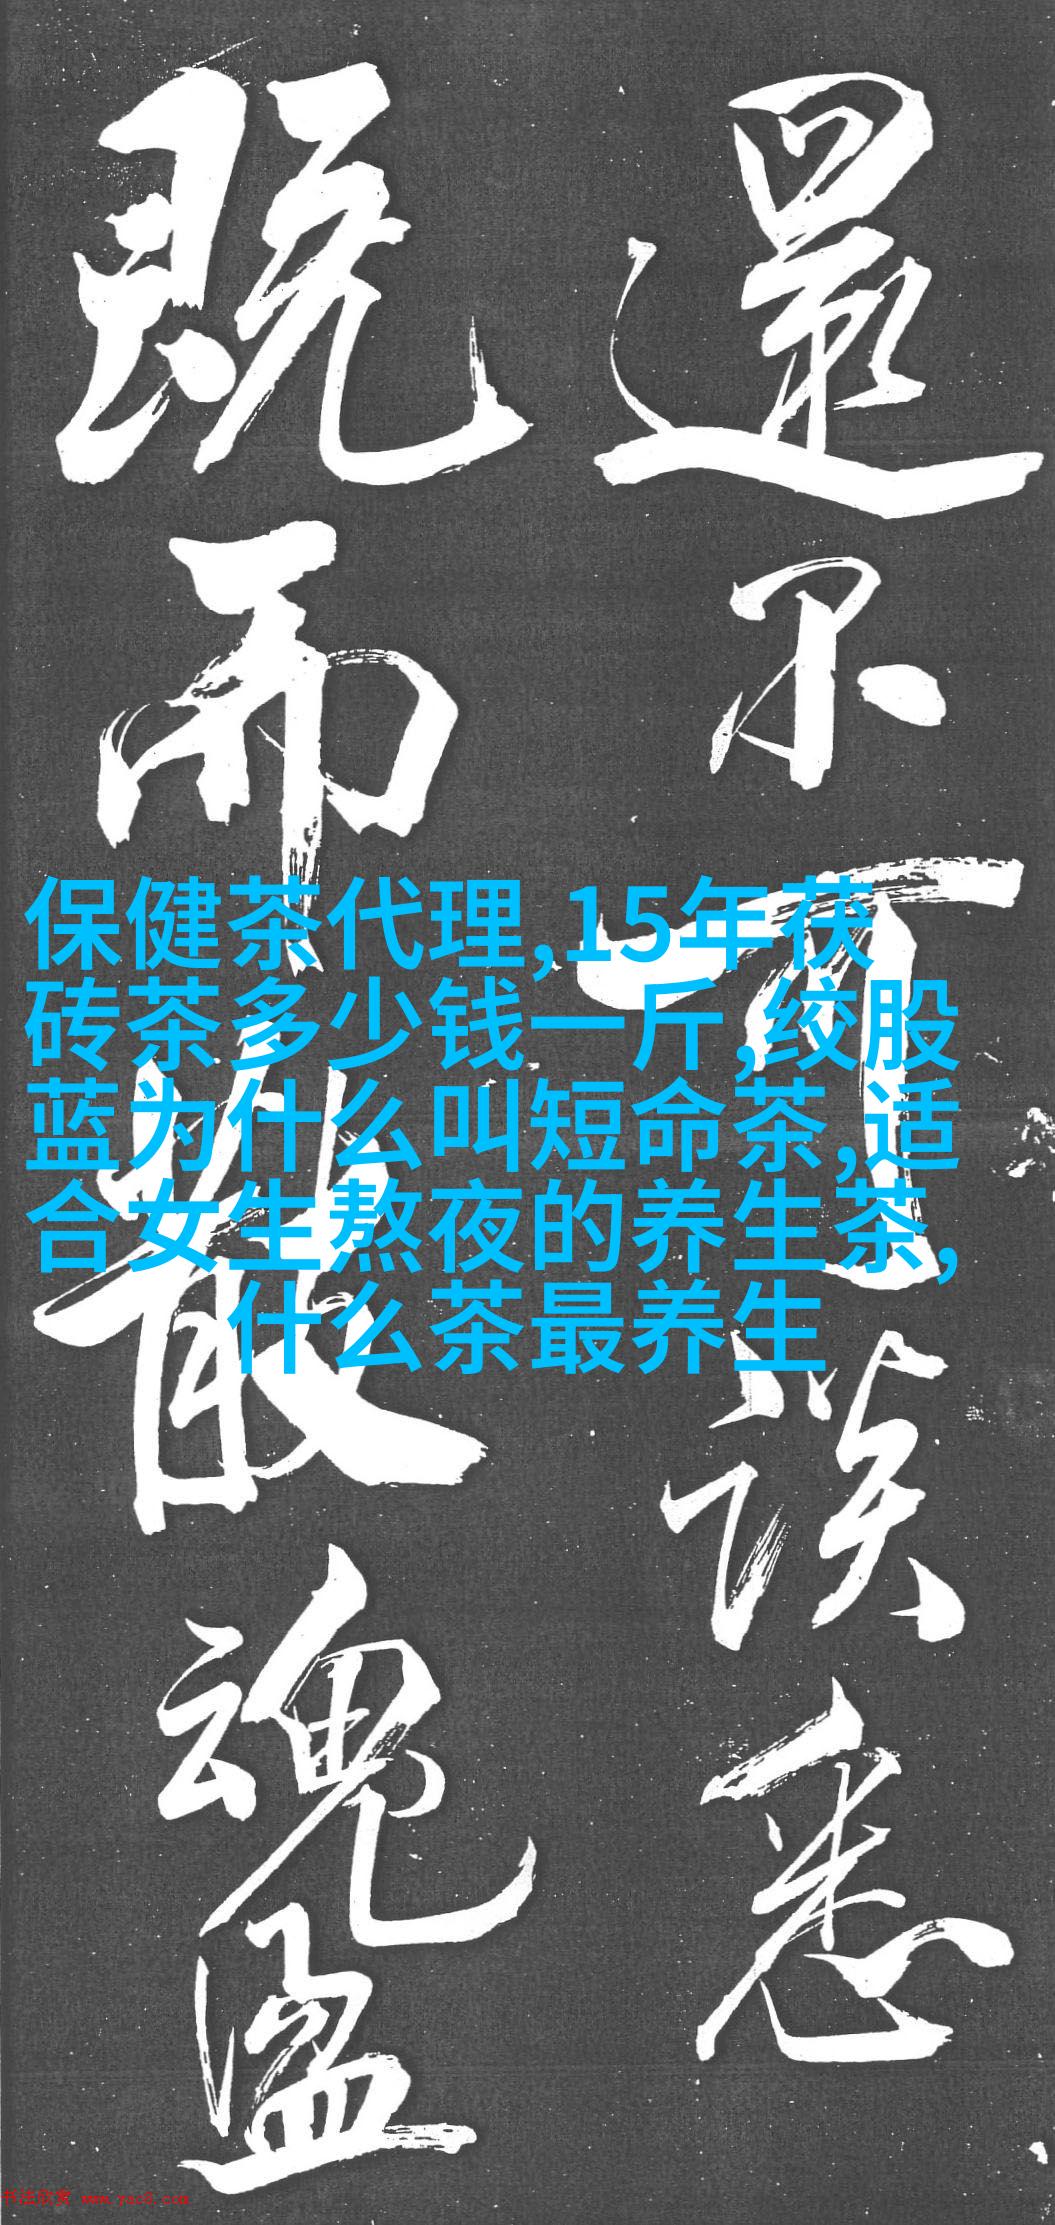 還不可談悉
既而散魂盪
保健茶代理,15年茯
砖茶多少钱一斤,绞股
蓝为什么叫短命茶,适
合女生熬夜的养生茶,
什么茶最养生
书法欣赏 www.yac8.com